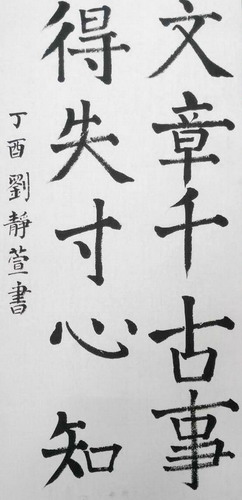 文章千古事
得失寸心知
丁酉劉靜萱書